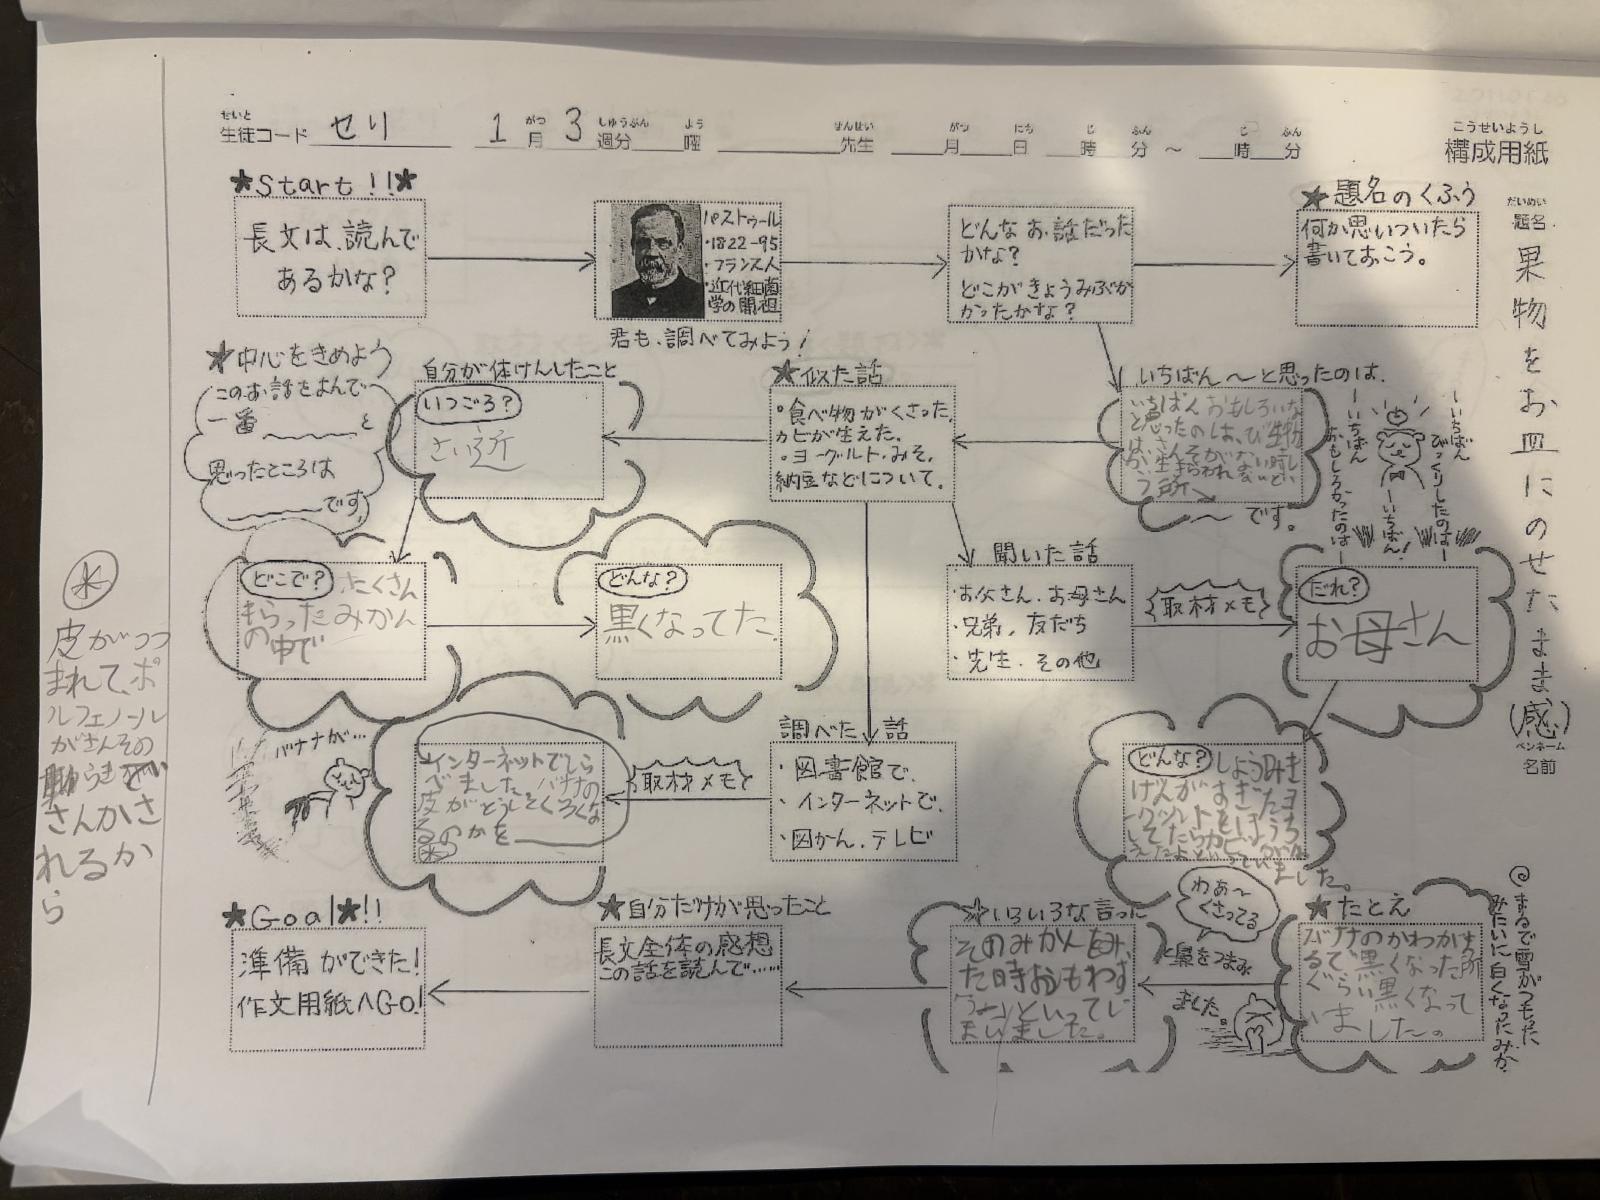 せいと
生徒コード せり
1月 3週分 曜 先生 月 日 時 分 ～ 時 分
がつ しゅうぶん よう せんせい がつ にち じ ふん じ ふん
こうせいようし
構成用紙
だいめい
題名
果物をお皿にのせたまま(感)
ペンネーム
名前
★Start!!★
長文は、読んで
あるかな?
パストゥール
・1822-95
・フランス人
・近代細菌
学の開祖
君も、調べてみよう!
どんなお話だった
かな?
どこがきょうみぶか
かったかな?
★題名のくふう
何か思いついたら
書いておこう。
★中心をきめよう
このお話をよんで
一番 と
思ったところは
です。
自分が体けんしたこと
いつごろ?
さい近
★似た話
・食べ物がくさった、
カビが生えた。
・ヨーグルト・みそ、
納豆などについて。
いちばん～と思ったのは、
いちばんおもしろいな
と思ったのは、び生物
は、さんそがない時し
か生まられないとい
う所
～です。
ーいちばん
びっくりしたのはー
ーいちばん!
ーいちばん
おもしろかったのはー
どこで? たくさん
もらったみかん
の中で
どんな?
黒くなってた。
聞いた話
・お父さん、お母さん
・兄弟、友だち
・先生、その他
取材メモ
だれ?
お母さん
バナナが…
インターネットでしら
べました。バナナの
皮がどうしてくろくな
るのかを
※
取材メモ
調べた話
・図書館で、
・インターネットで、
・図かん、テレビ
どんな? しょうみき
げんがすぎたヨ
ーグルトをほうち
してたらカビが
えたよといっていました。
※
皮がつつ
まれて、ポ
ルフェノール
がさんその
動らきでい
さんかさ
れるか
ら
★Goal★!!
準備ができた!
作文用紙へGo!
★自分だけが思ったこと
長文全体の感想
この話を読んで……
★いろいろな言った
そのみかんをみ
た時おもわず
うわっといってし
まいました。
わあ～
くさってる
と鼻をつまみ
ました。
★たとえ
バナナのかわがす
るぐらい黒くなって
いました。
まるで雪がつもった
みたいに白くなったみか